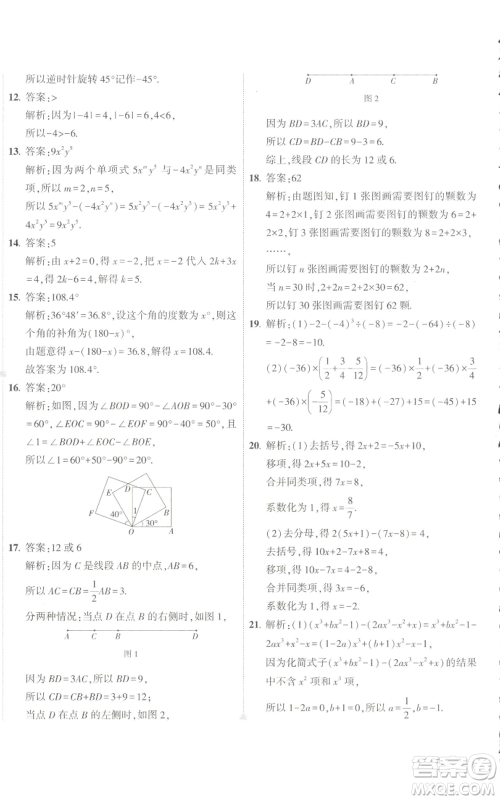 所以逆时针旋转 45°记作-45°.
12. 答案:>
解析:因为|-4|=4,|-6|=6,4<6,
所以-4>-6.
13. 答案:9x²y⁵
解析:因为两个单项式 5xᵐy⁵ 与-4x²yⁿ 是同类
项,所以 m=2,n=5,
所以 5xᵐy⁵-(-4x²yⁿ)=5x²y⁵-(-4x²y⁵)=
9x²y⁵.
14. 答案:5
解析:由 x+2=0,得 x=-2,代入方程 2k+3x
=4,得 2k-6=4,解得 k=5.
15. 答案:108.4°
解析:36°48′=36.8°,设这个角的度数为 x°,则这
个角的补角为(180-x)°.
由题意得 x-(180-x)=36.8,解得 x=108.4.
故答案为 108.4°.
16. 答案:20°
解析:如图,∠BOD=90°-∠AOB=90°-30°=
60°,∠EOC=90°-∠EOF=90°-40°=50°,且
∠1=∠BOD+∠EOC-∠BOE,
所以∠1=60°+50°-90°=20°.
E D C B
F 40° 1 30°
O A
17. 答案:12 或 6
解析:因为 C 是线段 AB 的中点,AB=6,
所以 AC=CB=1/2AB=3.
分两种情况:当点 D 在点 B 的右侧时,如图 1,
A C B D
图 1
因为 BD=3AC,所以 BD=9,
所以 CD=CB+BD=3+9=12;
当点 D 在点 B 的左侧时,如图 2,
D A C B
图 2
因为 BD=3AC,所以 BD=9,
所以 CD=BD-CB=9-3=6.
综上,线段 CD 的长为 12 或 6.
18. 答案:62
解析:由题图知,钉 1 张图画需要图钉的颗数为
4=2+2×1,钉 2 张图画需要图钉的颗数为 6=2+
2×2,钉 3 张图画需要图钉的颗数为 8=2+2×3,
……,
所以钉 n 张图画需要图钉的颗数为 2+2n,
当 n=30 时,2+2n=2+2×30=62,
所以钉 30 张图画需要图钉 62 颗.
19. 解析:(1)-2-(-4)³÷(-8)=-2-(-64)÷(-8)
=-2-8=-10.
(2)(-36)×(1/2+3/4-5/12)=(-36)×1/2+(-36)×3/4
+(-36)×(-5/12)=(-18)+(-27)+15=(-45)+15
=-30.
20. 解析:(1)去括号,得 2x=-5x+10,
移项,得 2x+5x=10,
合并同类项,得 7x=8,
系数化为 1,得 x=8/7.
(2)去分母,得 2(5x+1)-(7x+2)=4,
去括号,得 10x+2-7x-2=4,
移项,得 10x-7x=4-2+2,
合并同类项,得 3x=4,
系数化为 1,得
21. 解析:(1)(x³+bx²-1)-(2ax³-x²+x)=x³+bx²-1-
2ax³+x²-x=(1-2a)x³+(b+1)x²-x-1.
因为化简式子(x³+bx²-1)-(2ax³-x²+x)的结果
中不含 x³ 项和 x² 项,
所以 1-2a=0,b+1=0,所以 a=1/2,b=-1.